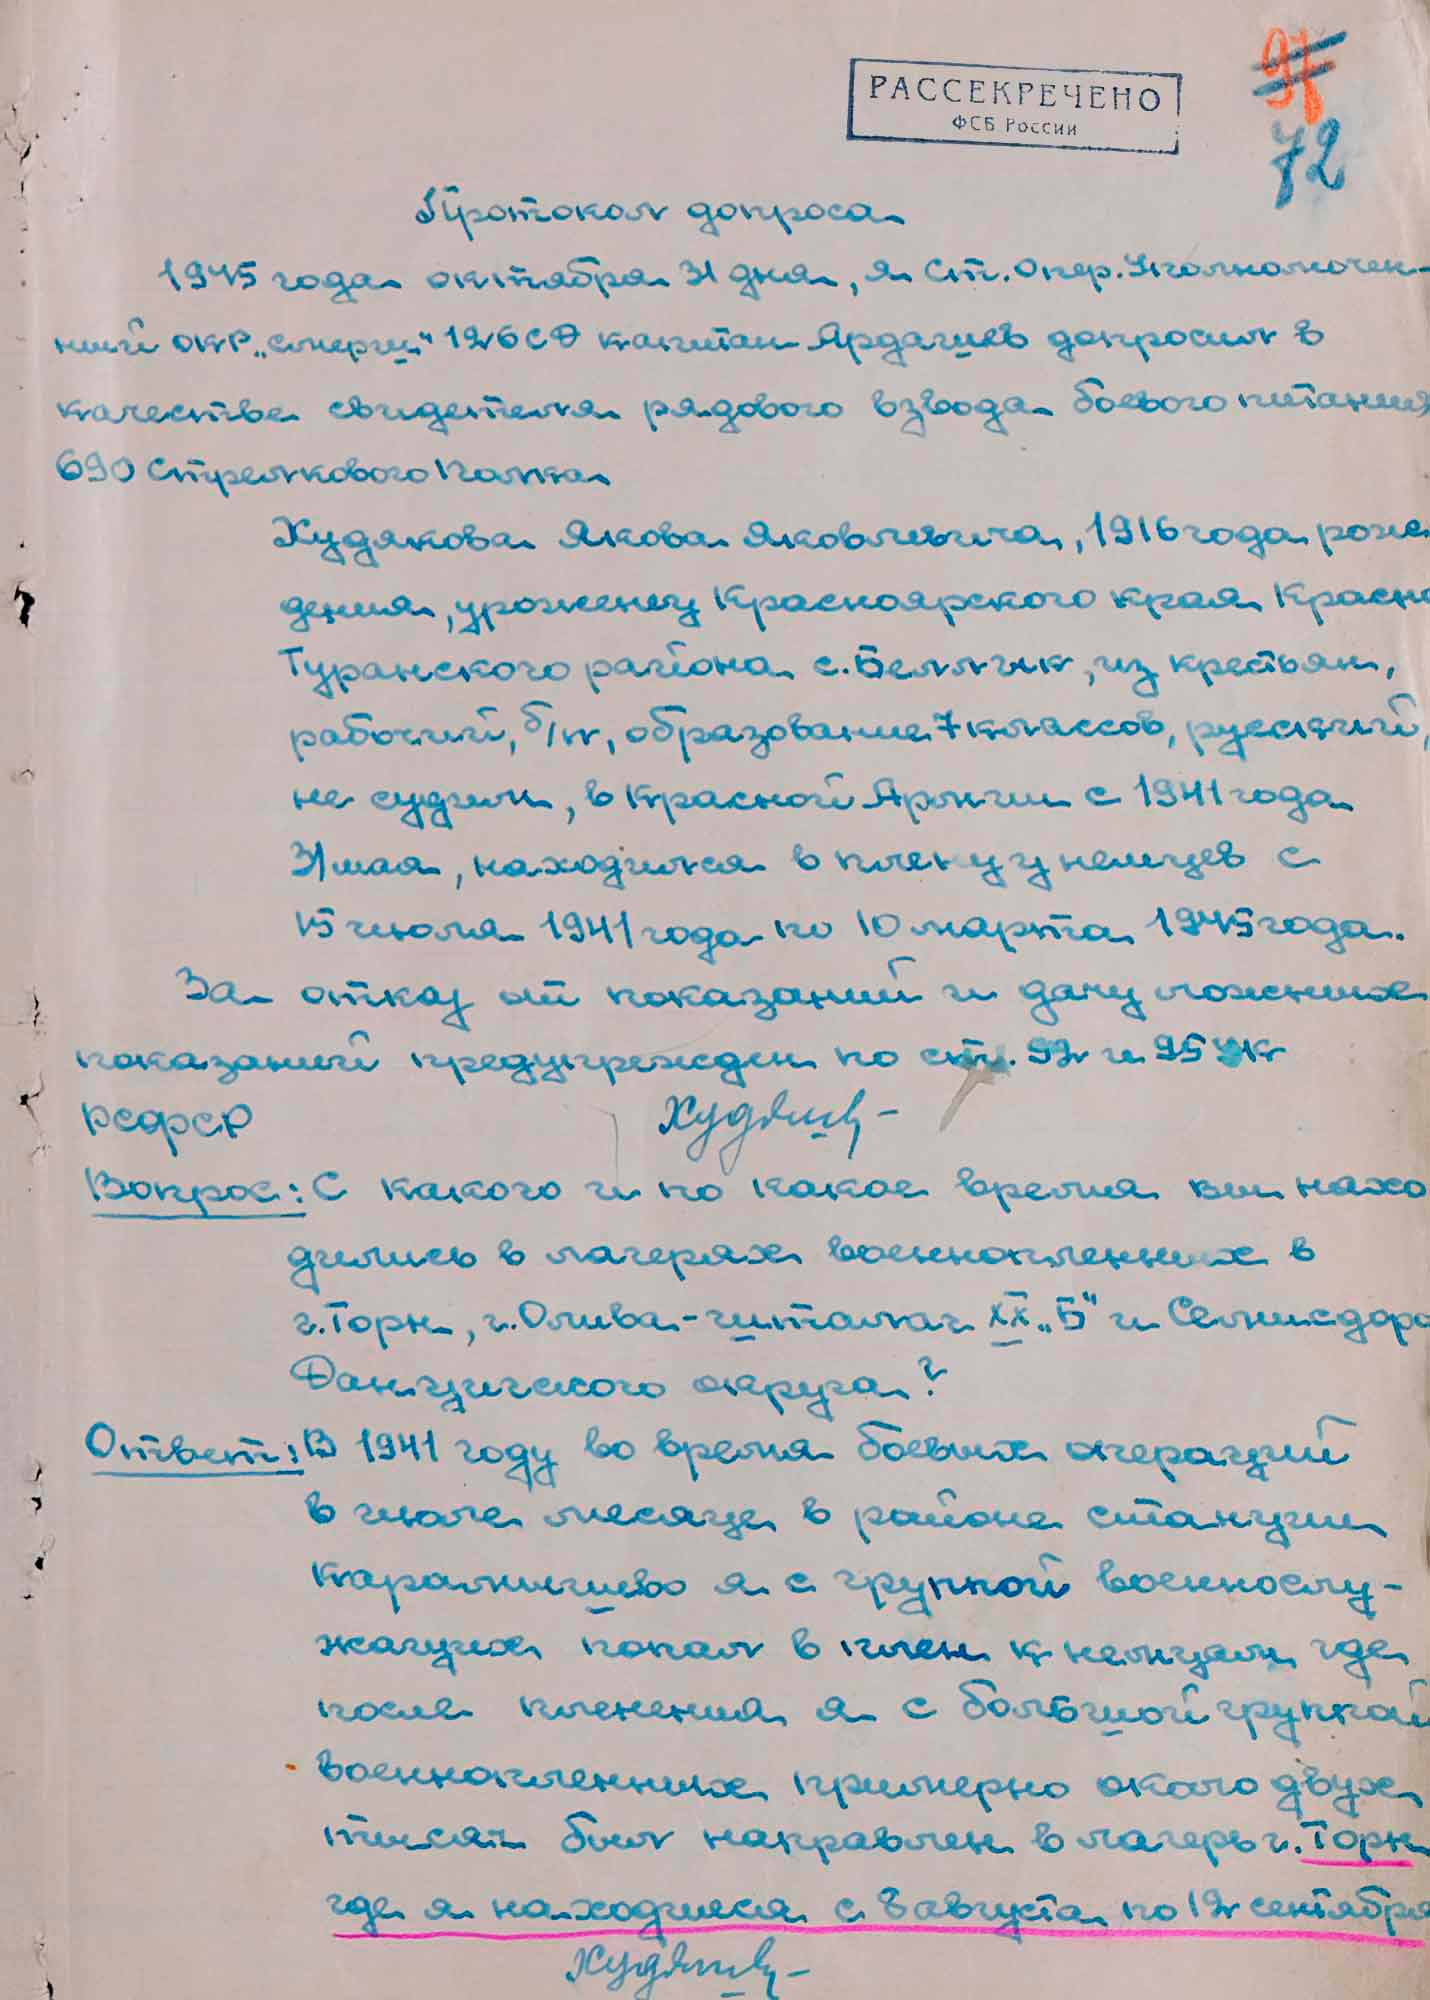 РАССЕКРЕЧЕНО
ФСБ России
97
72
Протокол допроса
1945 года октября 31 дня, я Ст. Опер. Уполномочен-
ный ОКР „Смерш" 126 СД капитан Ардашев допросил в
качестве свидетеля рядового взвода боевого питания
690 Стрелкового полка
Худякова Якова Яковлевича, 1916 года рож
дения, уроженец Красноярского края Красно
Туранского района с. Беллык, из крестьян,
рабочий, б/п, образование 7 классов, русский,
не судим, в Красной Армии с 1941 года
31 мая, находился в плену у немцев с
15 июля 1941 года по 10 марта 1945 года.
За отказ от показаний и дачу ложных
показаний предупрежден по ст. 92 и 95 УК
РСФСР
Вопрос: С какого и по какое время вы нахо
дились в лагерях военнопленных в
г. Торн, г. Олива - шталаг XX „Б" и
Данцигского округа?
Ответ: В 1941 году во время боевых операций
в июле месяце в районе станции
Карамышево я с группой военнослу-
жащих попал в плен к немцам, где
после пленения я с большой группой
военнопленных примерно около двух
тысяч был направлен в лагерь г. Торн
где я находился с 8 августа по 12 сентября